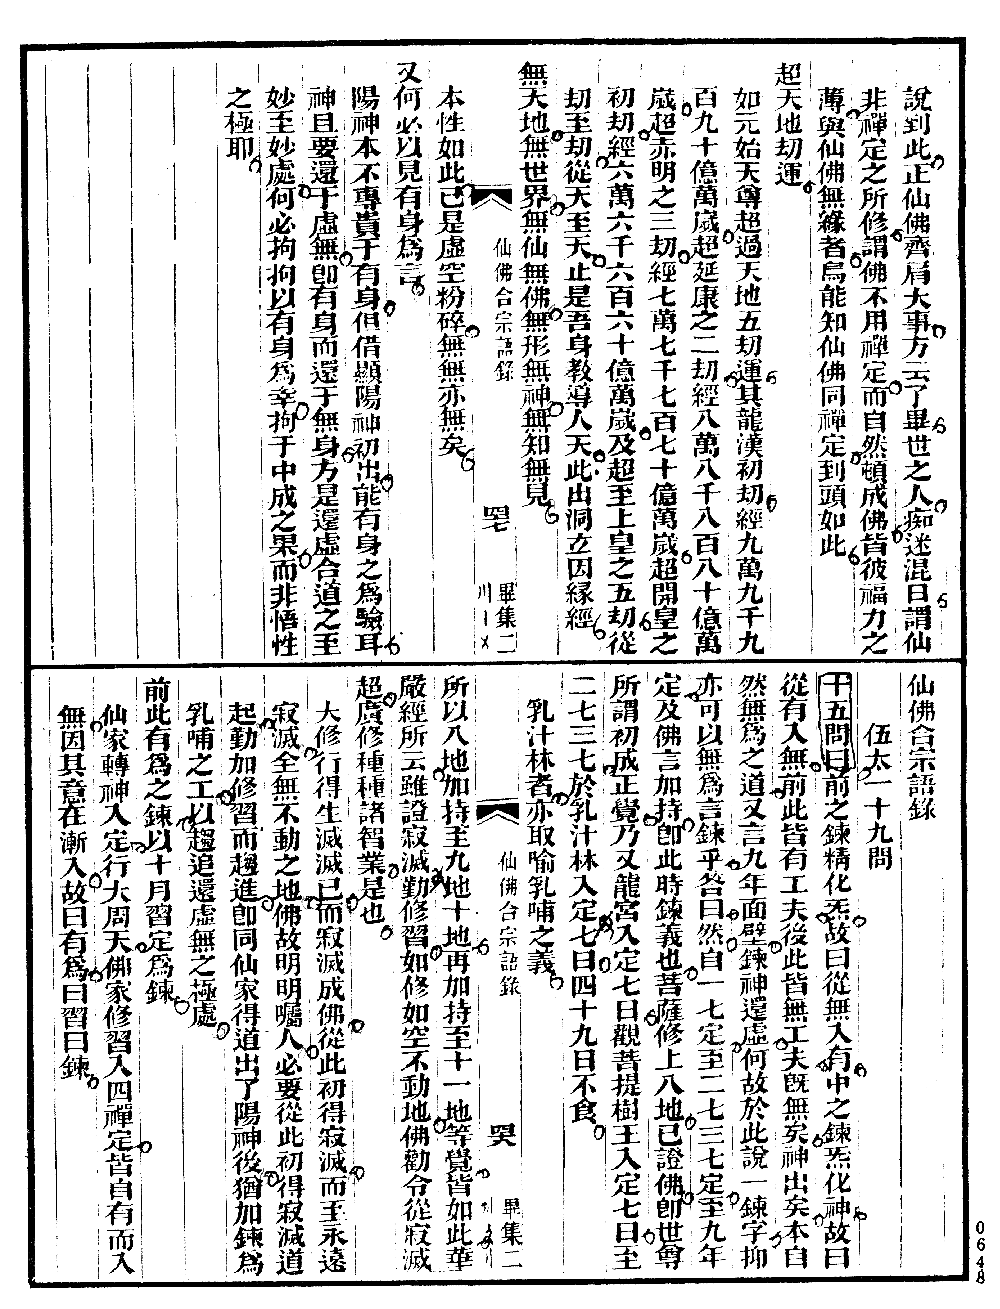 說到此正仙佛齊肩大事方云了畢世之人痴迷混日謂仙
非禪定之所修謂佛不用禪定而自然頓成佛皆彼福力之
薄與仙佛無緣者烏能知仙佛同禪定到頭如此
超天地劫運
如元始天尊超過天地五劫運其龍漢初劫經九萬九千九
百九十億萬歲超延康之二劫經八萬八千八百八十億萬
歲超赤明之三劫經七萬七千七百七十億萬歲超開皇之
初劫經六萬六千六百六十億萬歲及超至上皇之五劫從
劫至劫從天至天止是吾身教導人天此出洞立因緣經
無天地無世界無仙無佛無形無神無知無見
仙佛合宗語錄
畢集二
本性如此已是虛空粉碎無無亦無矣
又何必以見有身為言
陽神本不專貴于有身但借顯陽神初出能有身之為驗耳
神且要還于虛無卽有身而還于無身方是還虛合道之至
妙至妙處何必拘拘以有身為幸拘于中成之果而非悟性
之極耶
仙佛合宗語錄
伍太一十九問
十五問曰前之鍊精化炁故曰從無入有中之鍊炁化神故曰
從有入無前此皆有工夫後此皆無工夫旣無矣神出矣本自
然無為之道又言九年面壁鍊神還虛何故於此說一鍊字抑
亦可以無為言鍊乎答曰然自一七定至二七三七定至九年
定及佛言加持卽此時鍊義也菩薩修上八地已證佛卽世尊
所謂初成正覺乃又龍宮入定七日觀菩提樹王入定七日至
二七三七於乳汁林入定七日四十九日不食
乳汁林者亦取喻乳哺之義
仙佛合宗語錄
畢集二
所以八地加持至九地十地再加持至十一地等覺皆如此華
嚴經所云雖證寂滅勤修習如修如空不動地佛勸令從寂滅
超廣修種種諸智業是也
大修行得生滅滅已而寂滅成佛從此初得寂滅而至永遠
寂滅全無不動之地佛故明明囑人必要從此初得寂滅道
起勤加修習而趨進卽同仙家得道出了陽神後猶加鍊為
乳哺之工以趨追還虛無之極處
前此有為之鍊以十月習定為鍊
仙家轉神入定行大周天佛家修習入四禪定皆自有而入
無因其意在漸入故曰有為曰習曰鍊
0648